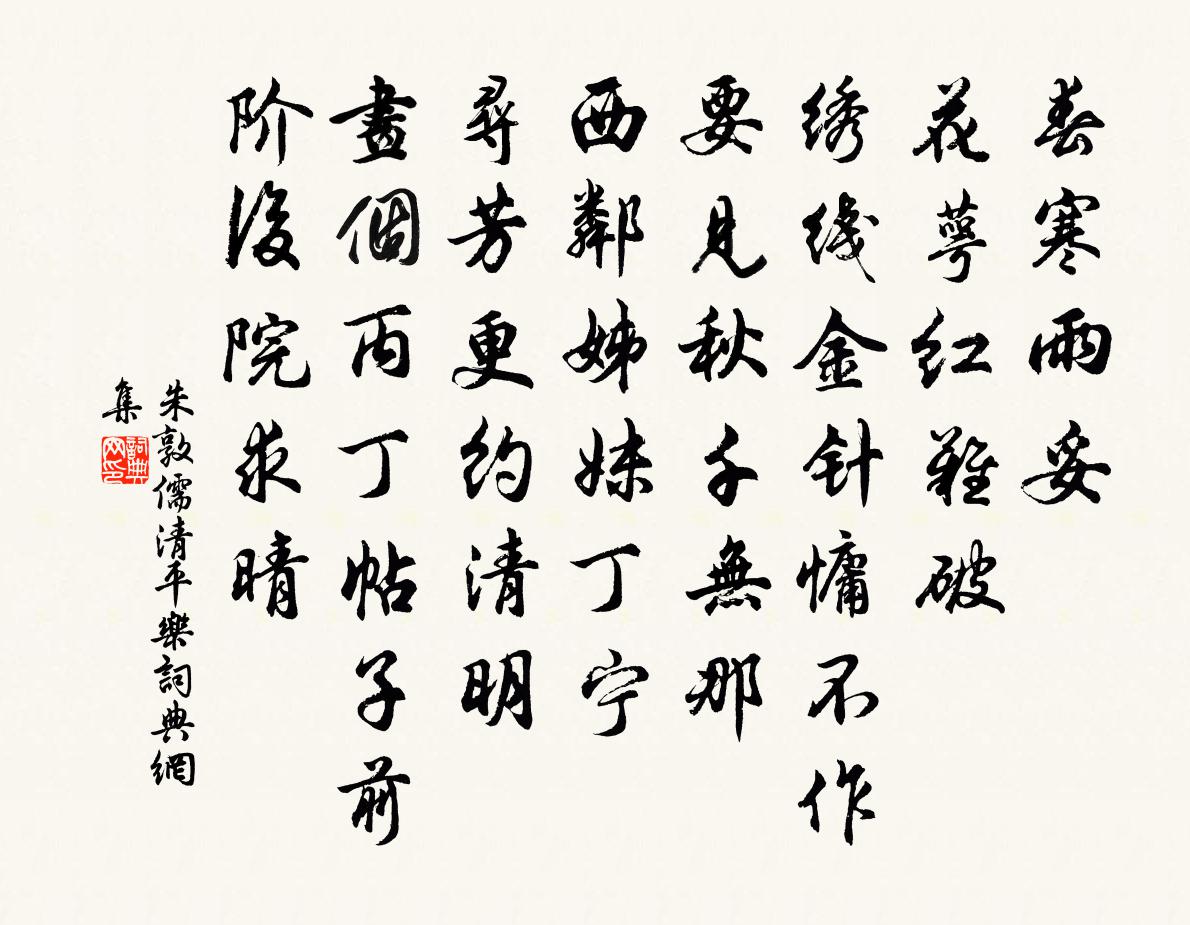 春寒雨妥
花萼红難破
绣线金针慵不作
要見秋千無那
西鄰姊妹丁宁
尋芳更约清明
畫個丙丁帖子前
阶後院求晴
朱敦儒清平樂詞典網
集
詞典
网印